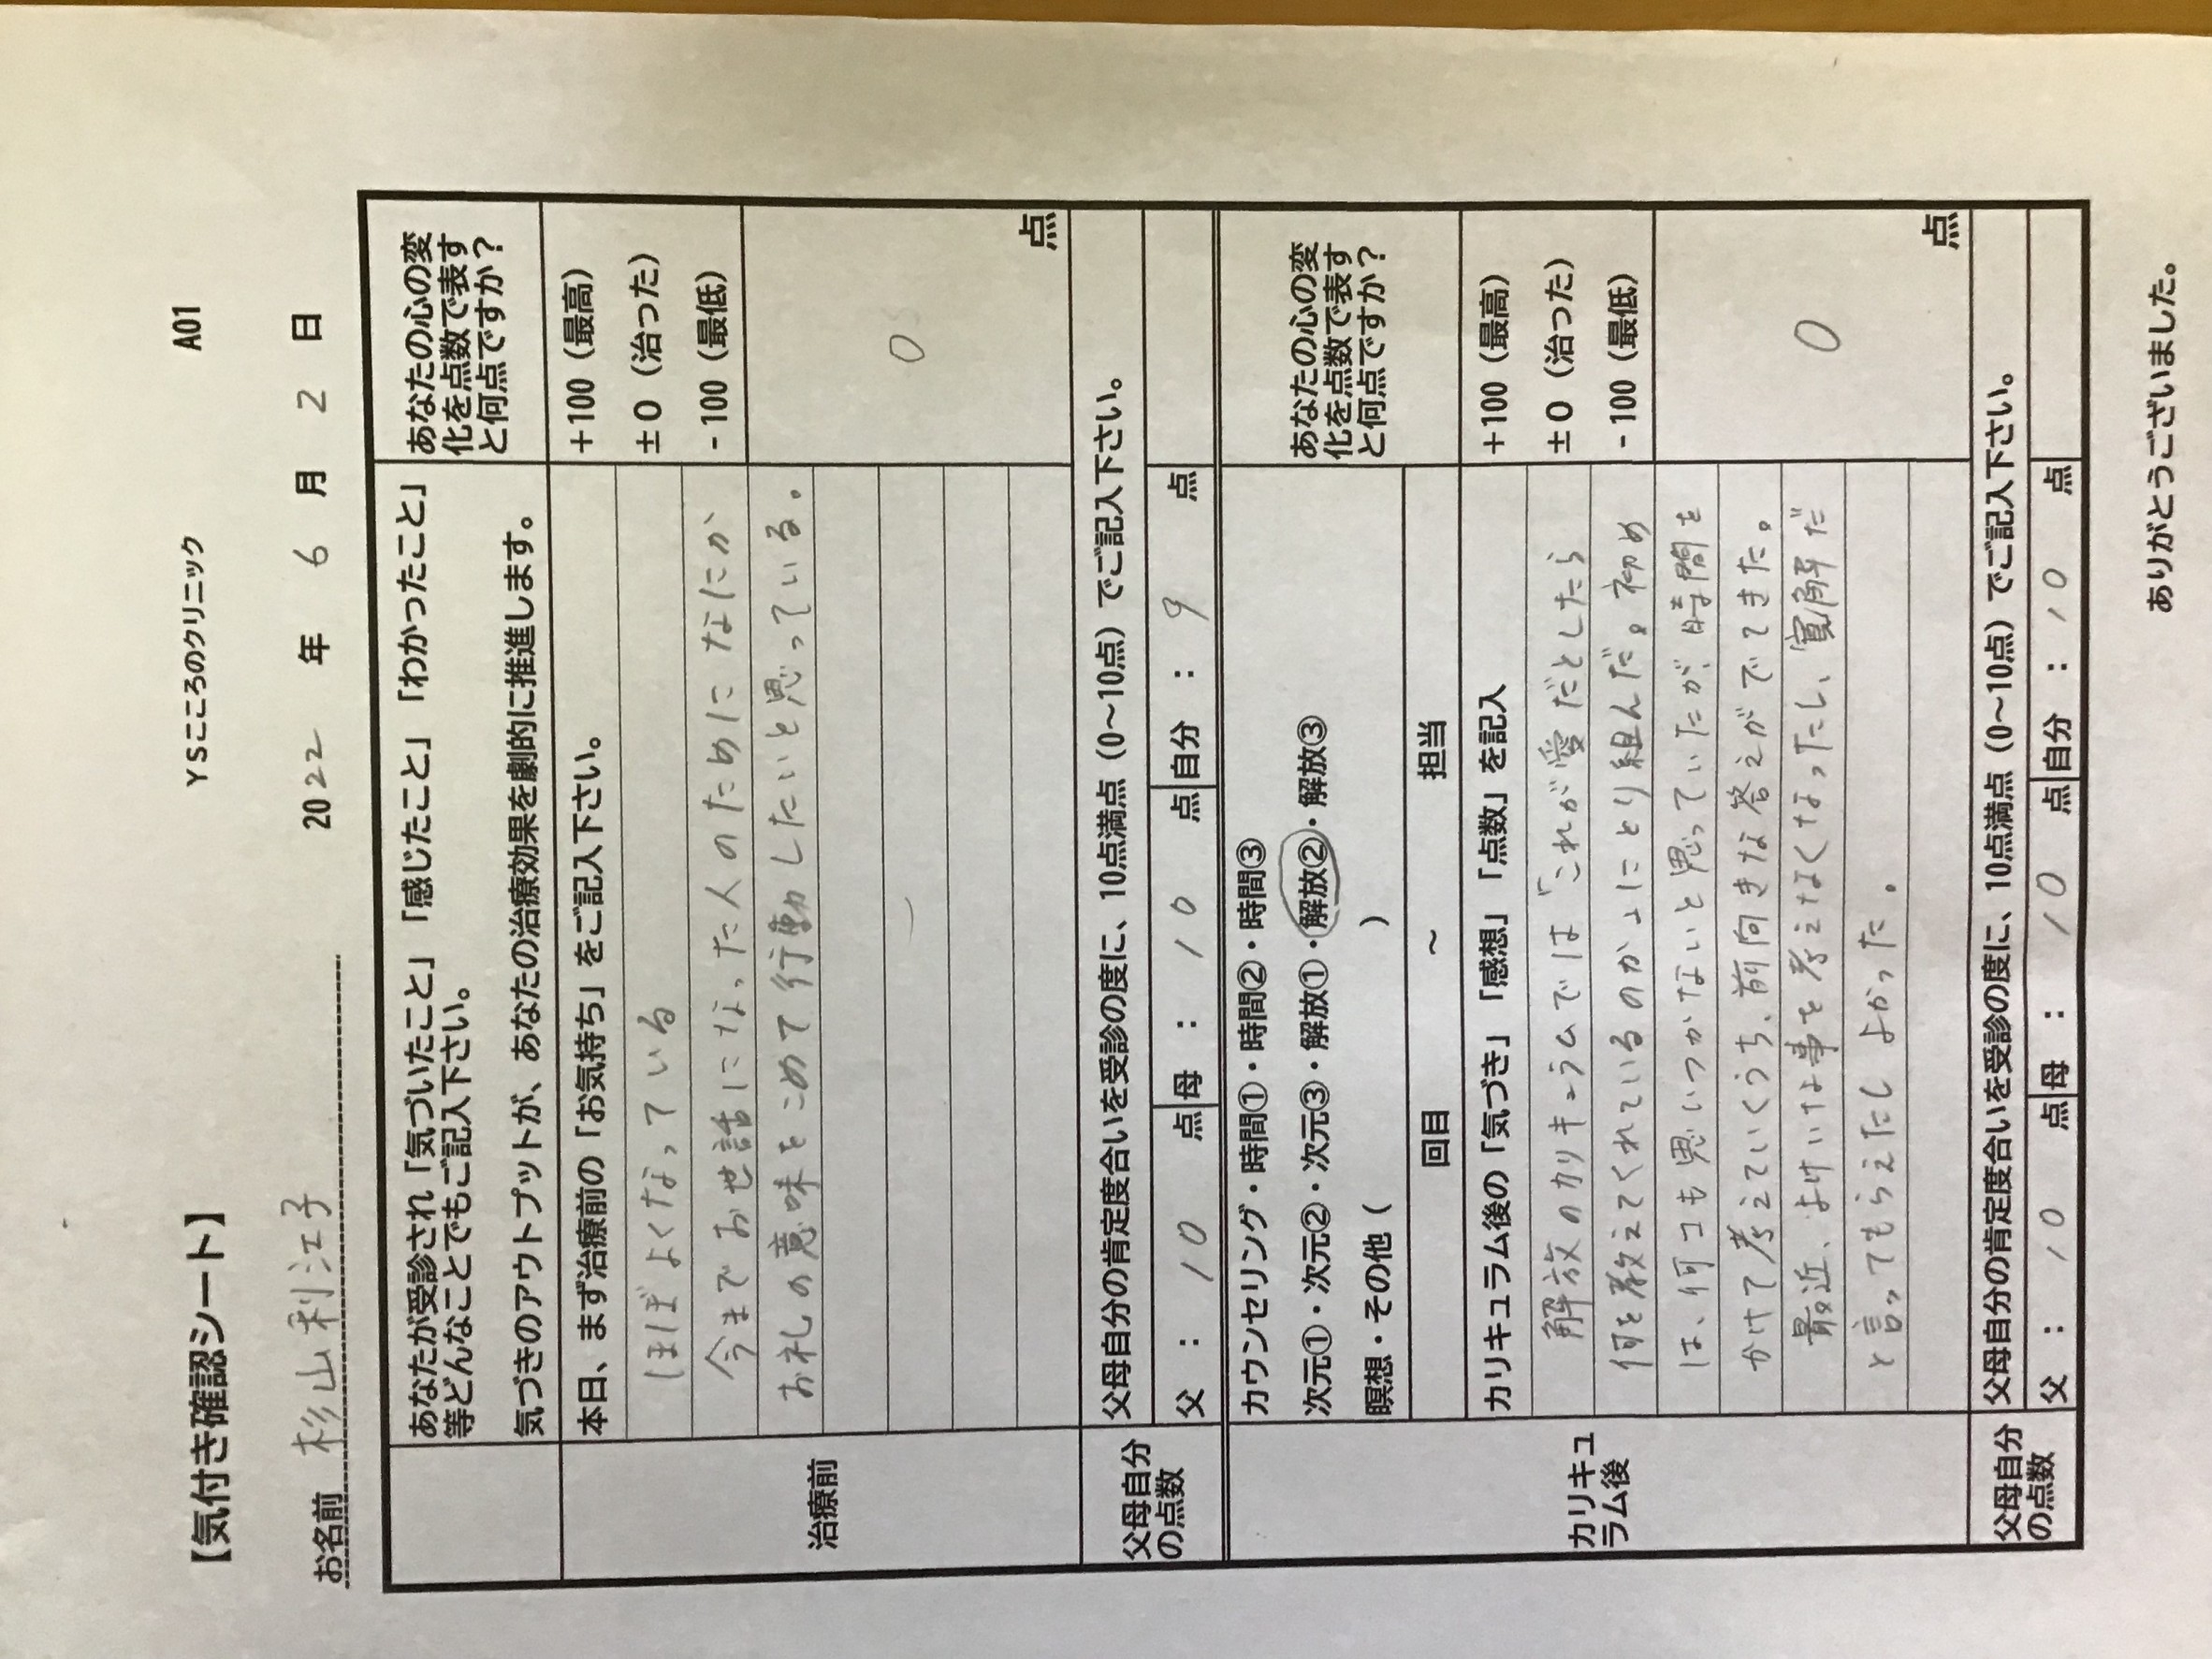 YSこころのクリニック　A01
【気付き確認シート】
お名前　杉山利江子　2022年6月2日
あなたが受診され「気づいたこと」「感じたこと」「わかったこと」
等どんなことでもご記入下さい。
気づきのアウトプットが、あなたの治療効果を劇的に推進します。
あなたの心の変
化を点数で表す
と何点ですか？
治療前
本日、まず治療前の「お気持ち」をご記入下さい。
ほぼよくなっている
今までお世話になった人のためになにか
お礼の意味をこめて行動したいと思っている。
+100（最高）
±0（治った）
-100（最低）
0点
父母自分
の点数
父母自分の肯定度合いを受診の度に、10点満点（0～10点）でご記入下さい。
父：10点　母：10点　自分：9点
カリキュ
ラム後
カウンセリング・時間①・時間②・時間③
次元①・次元②・次元③・解放①・解放②・解放③
瞑想・その他（　　　）
回目　～　担当
あなたの心の変
化を点数で表す
と何点ですか？
カリキュラム後の「気づき」「感想」「点数」を記入
解放のカリキュラムでは「これが愛だとしたら
何を教えてくれているのか」にとり組んだ。初め
は、何コも思いつかないと思っていたが、時間を
かけて考えていくうち、前向きな答えがでてきた。
最近、よけいな事を考えなくなったし、寛解だ
と言ってもらえたしよかった。
+100（最高）
±0（治った）
-100（最低）
0点
父母自分
の点数
父母自分の肯定度合いを受診の度に、10点満点（0～10点）でご記入下さい。
父：10点　母：10点　自分：10点
ありがとうございました。